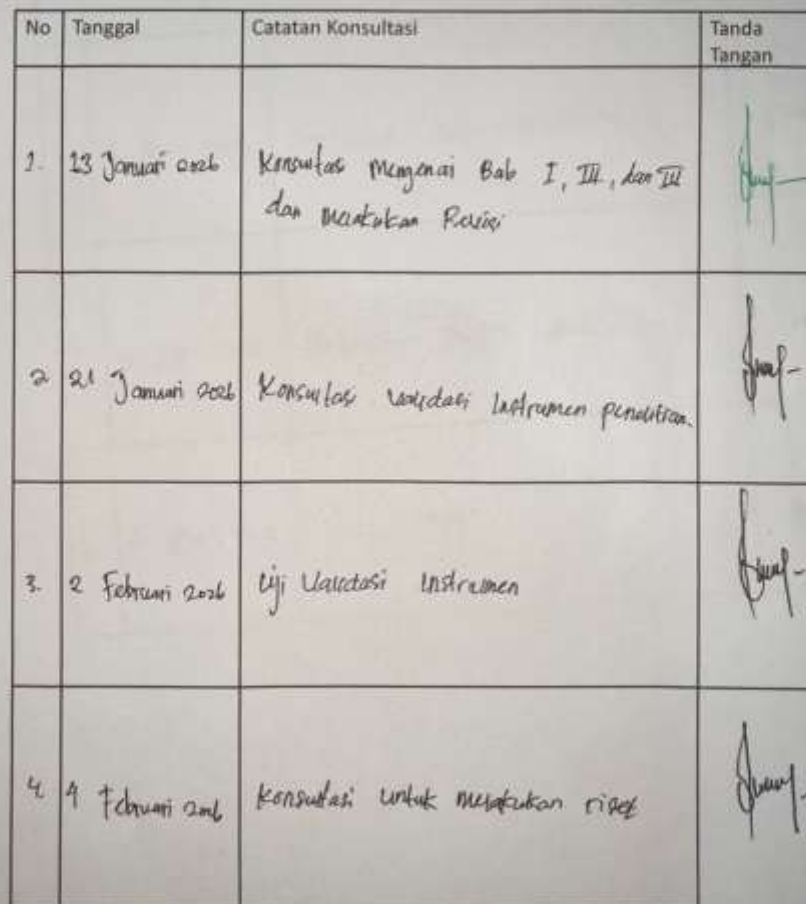 No Tanggal Catatan Konsultasi Tanda
Tangan
1. 13 Januari 2026 Konsultasi Mengenai Bab I, III, dan III
dan melakukan Revisi
2 21 Januari 2026 Konsultasi validasi Instrumen penelitian.
3. 2 Februari 2026 Uji Validasi instrumen
4. 4 Februari 2026 Konsultasi untuk melakukan riset